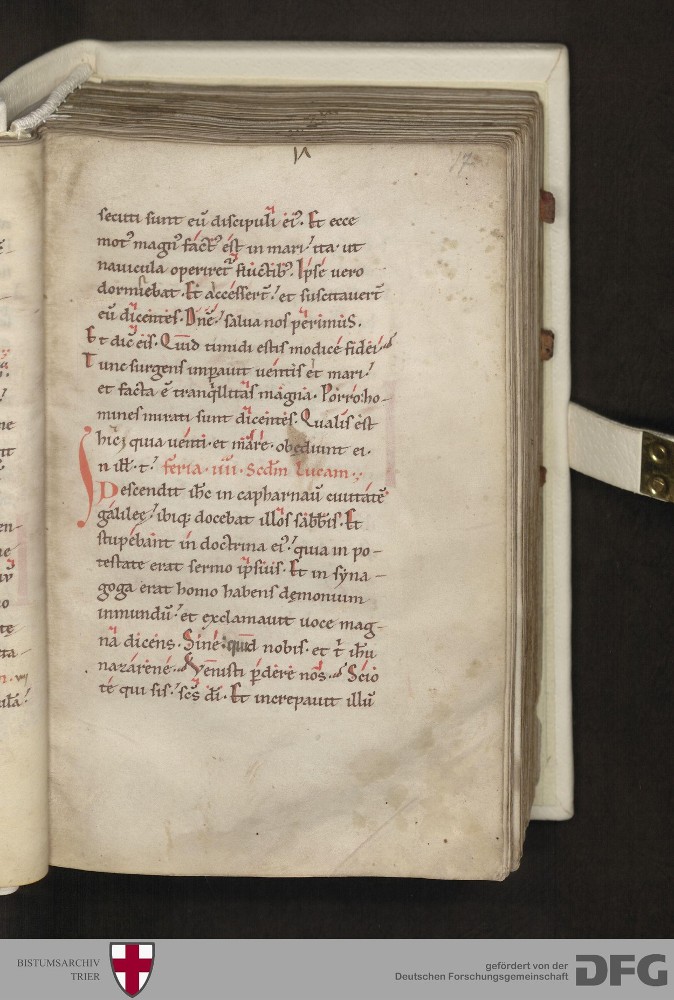 17
secuti sunt eū discipuli ei᾽. Et ecce
mot᾽ magn᾽ fact᾽ est in mari ita ut
nauicula operiret᾽ fluctib᾽. Ipse uero
dormiebat. Et accesser̄t et suscitauer̄t
eū dicentes. Dn̄e salua nos perimus.
Et dic̄ eis. Quid timidi estis modice fidei.
Tunc surgens imꝑauit uentis et mari
et facta ē tranq̄llitas magna. Porro ho-
mines mirati sunt dicentes. Qualis est
hic, quia uenti et mare obediunt ei.
In ill̄. t. feria iiii. Scd̄m Lucam
Descendit ih̄c in capharnaū ciuitatē
galilee ibiq; docebat illos sabb̄is. Et
stupebant in doctrina ei᾽ quia in po-
testate erat sermo ipsius. Et in syna-
goga erat homo habens dęmonium
inmundū et exclamauit uoce mag-
na dicens. Sine quid nobis et t̄ ih̄u
nazarene. Venisti ꝑdere nos. Scio
te qui sis sc̄s dī. Et increpauit illū
BISTUMSARCHIV
TRIER
gefördert von der
Deutschen Forschungsgemeinschaft
DFG